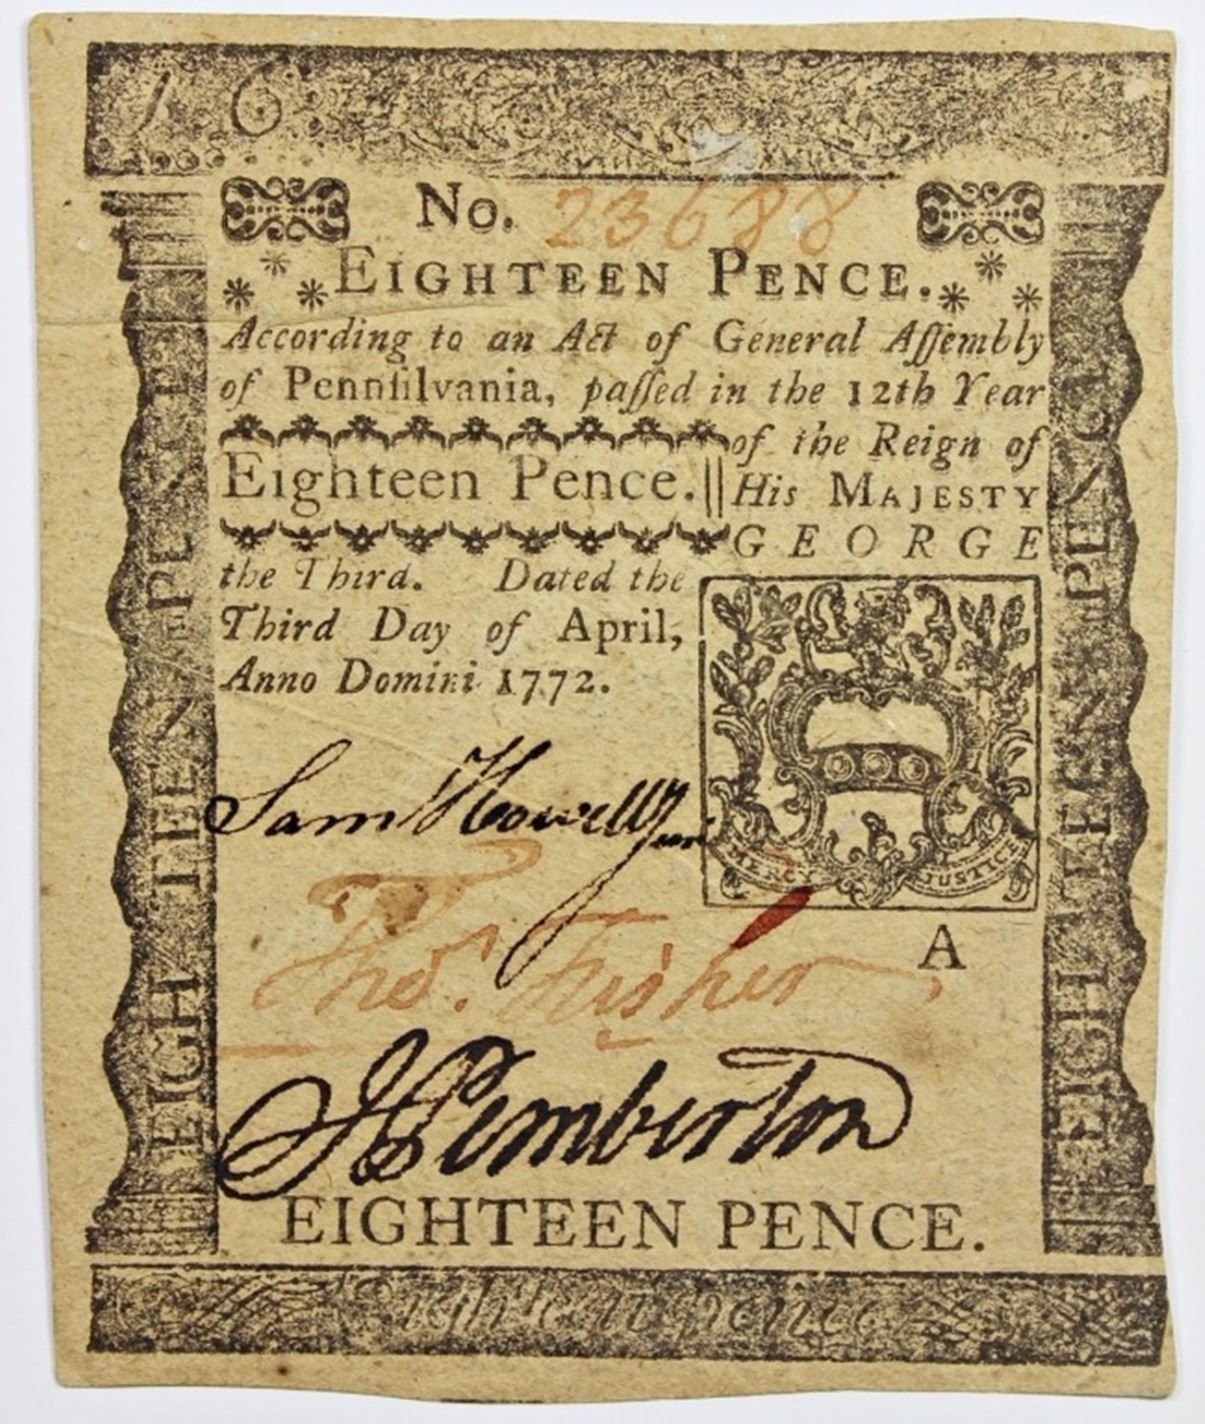 1 6
No. 23688
EIGHTEEN PENCE.
According to an Act of General Aſſembly
of Pennſilvania, paſſed in the 12th Year
of the Reign of
Eighteen Pence. || His MAJESTY
GEORGE
the Third. Dated the
Third Day of April,
Anno Domini 1772.
MERCY JUSTICE
Sam Howell Jun
A
Thos. Fisher
J Pemberton
EIGHTEEN PENCE.
Eighteen pence
EIGHTEEN PENCE
EIGHTEEN PENCE